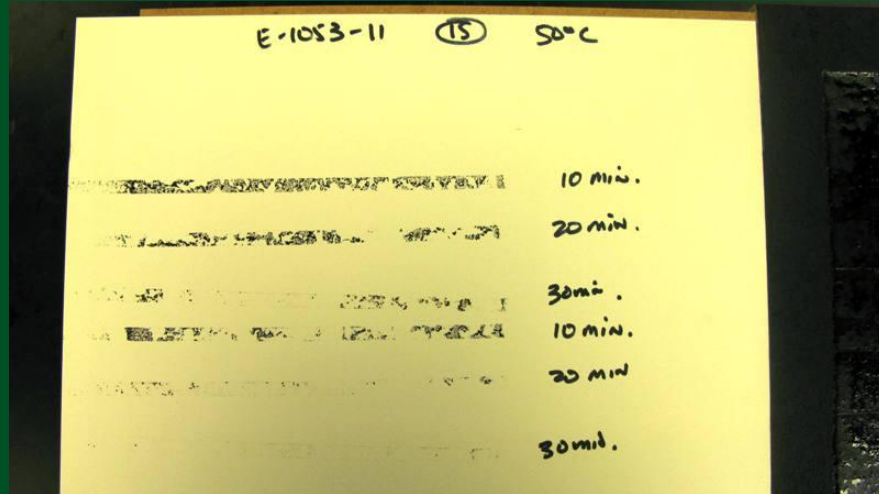 E-1053-11 15 50°C
10 min.
20 min.
30min.
10 min.
20 min
30 min.